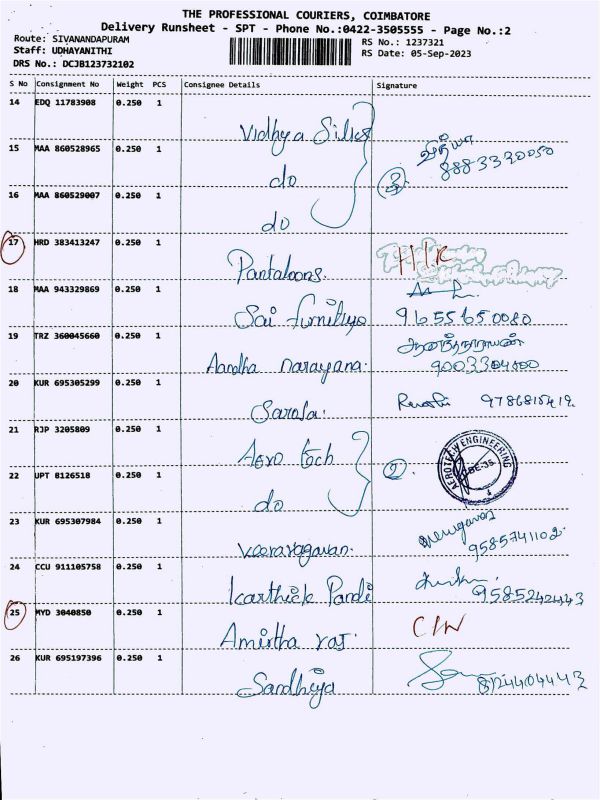 THE PROFESSIONAL COURIERS, COIMBATORE
Delivery Runsheet - SPT - Phone No.:0422-3505555 - Page No.:2
Route: SIVANANDAPURAM
RS No.: 1237321
Staff: UDHAYANITHI
RS Date: 05-Sep-2023
DRS No.: DCJB123732102
S No Consignment No Weight PCS Consignee Details Signature
14 EDQ 11783908 0.250 1 Vidhya Silks
15 MAA 860528965 0.250 1 do ③ வித்யா 8883330050
16 MAA 860529007 0.250 1 do
17 HRD 383413247 0.250 1 Pantaloons.
18 MAA 943329869 0.250 1 Sai furnitiyo 9655650080
19 TRZ 360045660 0.250 1 Aandha narayana. 9003304500
20 KUR 695305299 0.250 1 Sarola. 9786815412
21 RJP 3205809 0.250 1 Aero tech
AEROTECH ENGINEERING
CBE-35
22 UPT 8126518 0.250 1 do ②
23 KUR 695307984 0.250 1 Veeraragavan. 9585741102
24 CCU 911105758 0.250 1 Karthick Pandi 9585242443
25 MYD 3040850 0.250 1 Amirtha raj. C/W
26 KUR 695197396 0.250 1 Sandhiya 8124404443